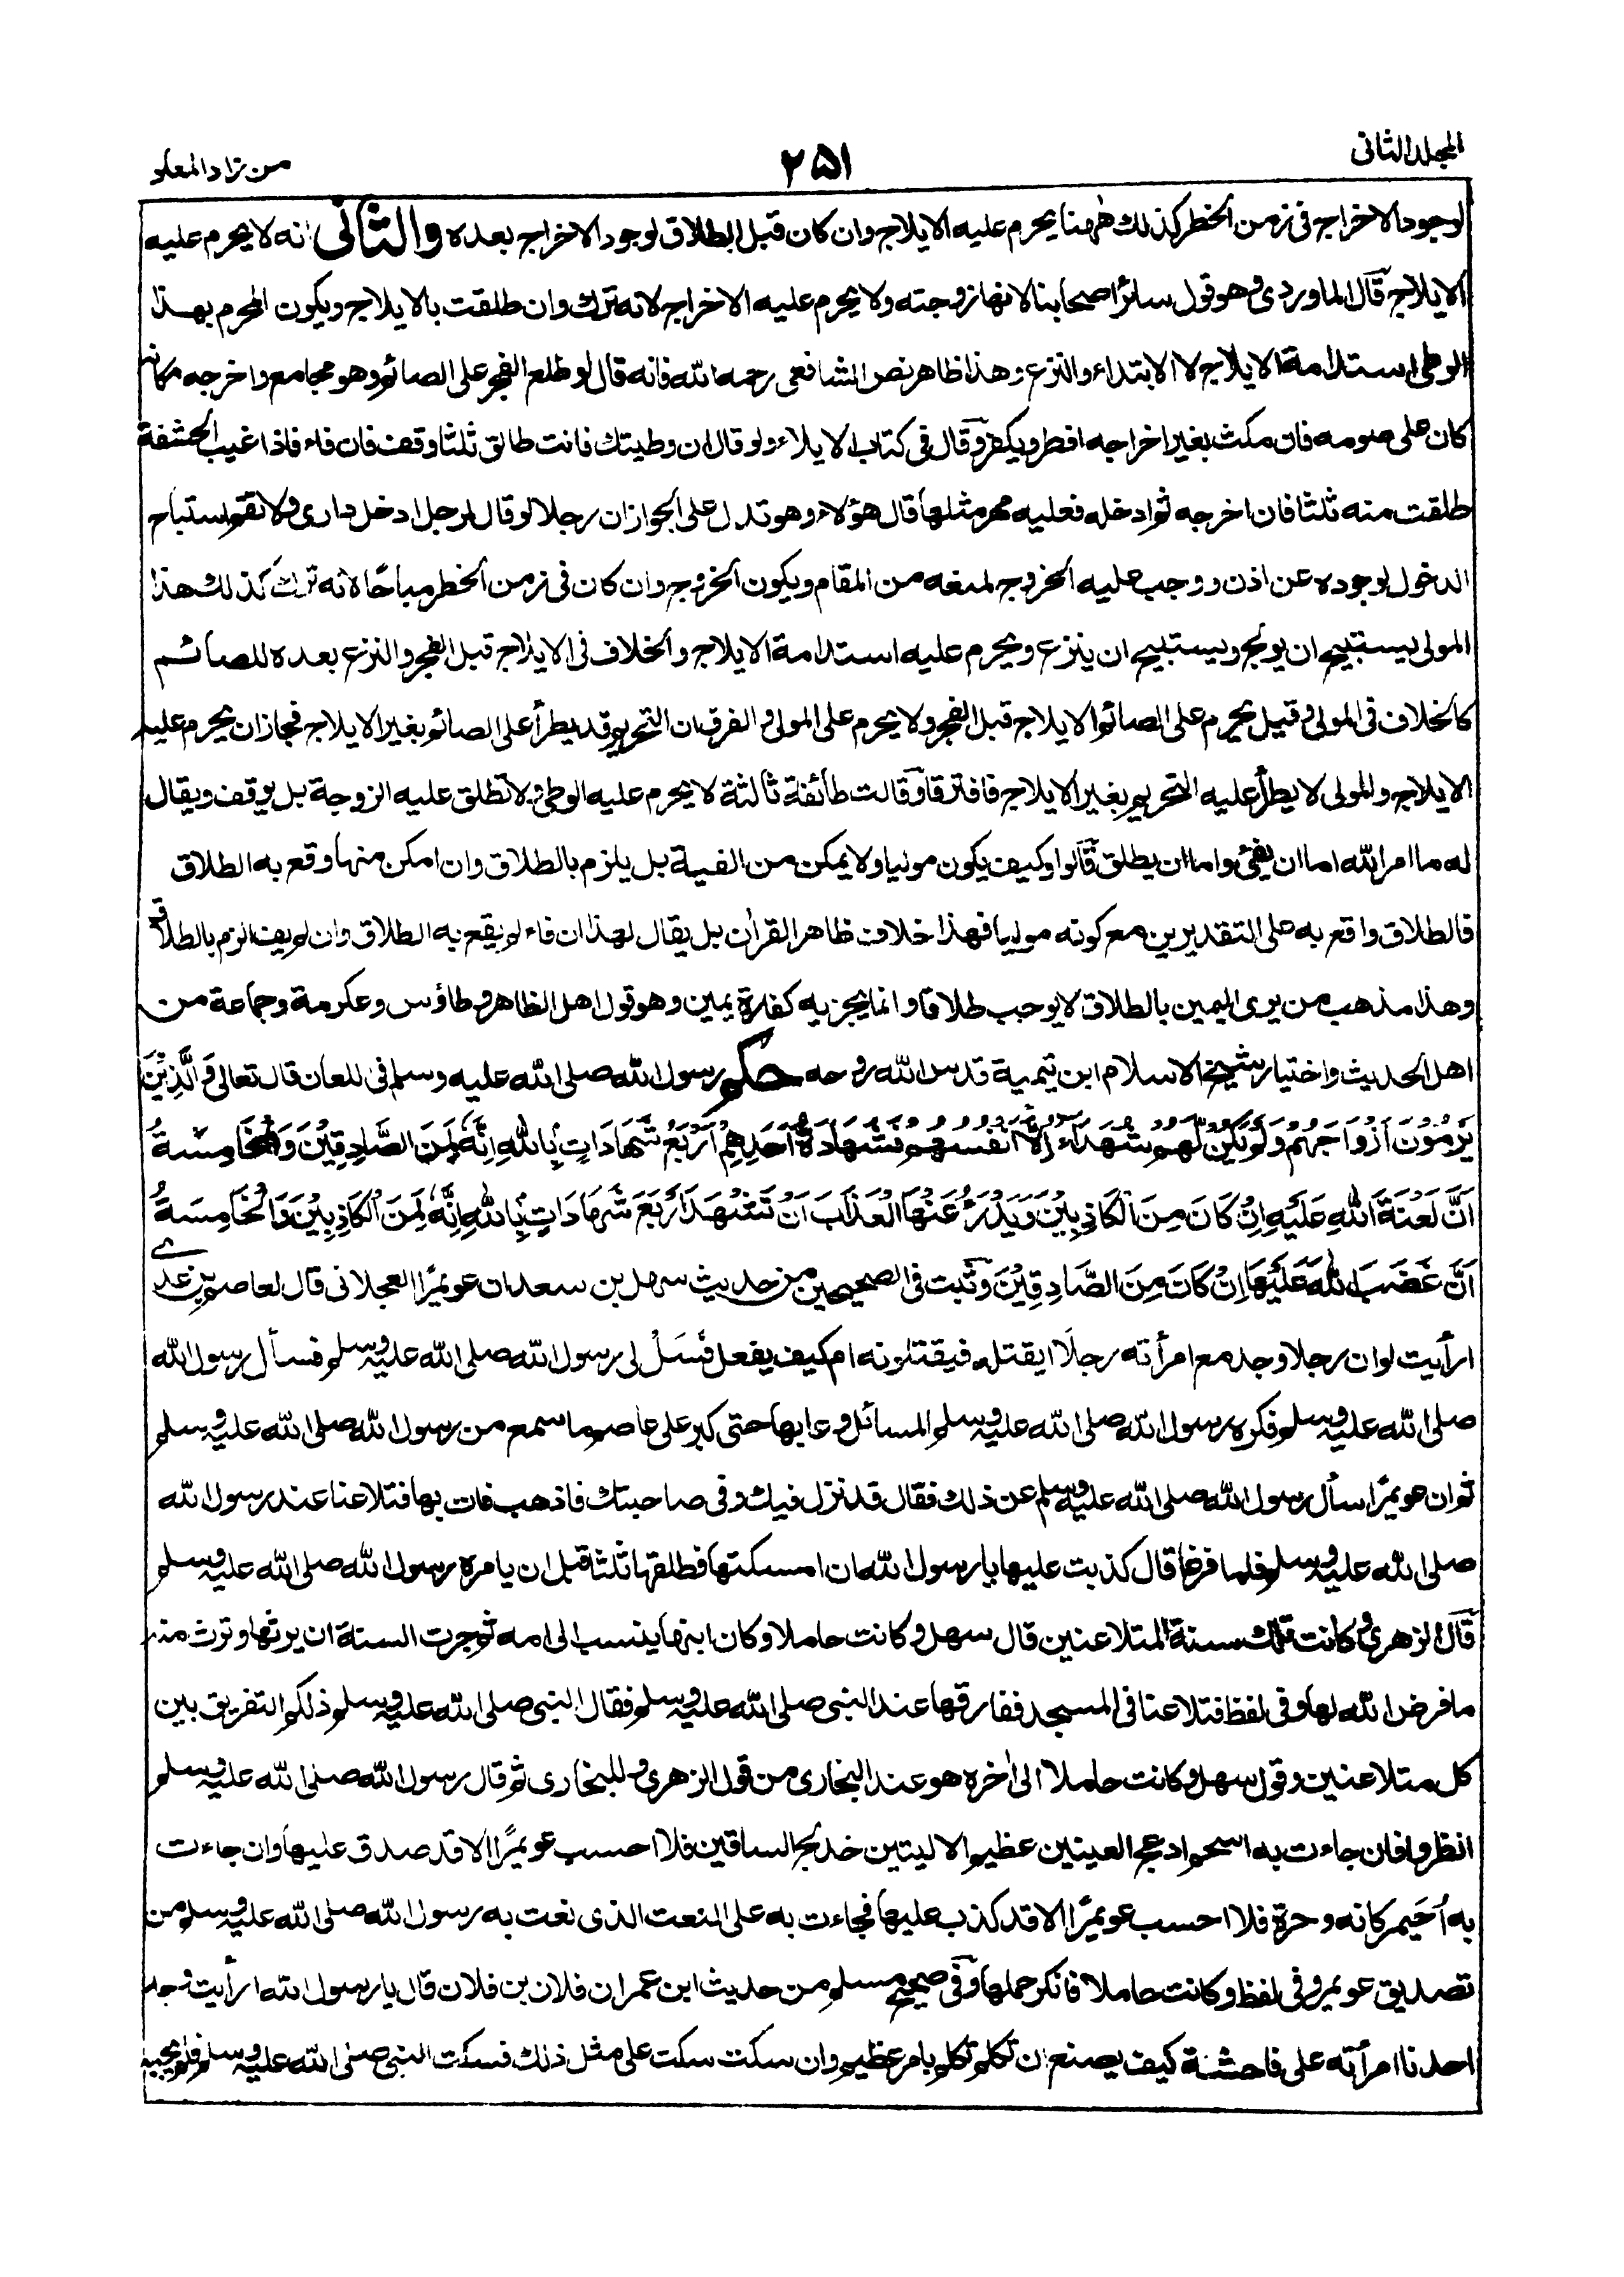 المجلد الثانى
٢٥١
من زاد المعاد
لوجود الاخراج فى زمن الخطر كذلك ههنا يحرم عليه الايلاج وان كان قبل الطلاق لوجود الاخراج بعده والثانى انه لا يحرم عليه
الايلاج قال الماوردى وهو قول سائر اصحابنا لانها زوجته ولا يحرم عليه الاخراج لانه ترك وان طلقت بالايلاج ويكون المحرم بهذا
الوطى استدامة الايلاج لا الابتداء والنزع وهذا ظاهر نص الشافعى رحمه الله فانه قال لو طلع الفجر على الصائم وهو مجامع واخرجه مكانه
كان على صومه فان مكث بغير اخراجه افطر ويكفر وقال فى كتاب الايلاء ولو قال ان وطيتك فانت طالق ثلثا وقف فان فاء فاذا غيب الحشفة
طلقت منه ثلثا فان اخرجه ثم ادخله فعليه مهر مثلها قال هؤلاء وهو تدل على الجواز ان رجلا لو قال لرجل ادخل دارى ولا تقم استباح
الدخول لوجوده عن اذن ووجب عليه الخروج لمنعه من المقام ويكون الخروج وان كان فى زمن الخطر مباحًا لانه ترك كذلك هذا
المولى يستبيح ان يولج ويستبيح ان ينزع ويحرم عليه استدامة الايلاج والخلاف فى الايلاج قبل الفجر والنزع بعده للصائم
كالخلاف فى المولى وقيل يحرم على الصائم الايلاج قبل الفجر ولا يحرم على المولى والفرق ان التحريم قد يطرأ على الصائم بغير الايلاج فجاز ان يحرم عليه
الايلاج والمولى لا يطرأ عليه التحريم بغير الايلاج فافترقا وقالت طائفة ثالثة لا يحرم عليه الوطى ولا تطلق عليه الزوجة بل يوقف ويقال
له ما امر الله اما ان يفئ واما ان يطلق قالوا وكيف يكون موليا ولا يمكن من الفيئة بل يلزم بالطلاق وان امكن منها وقع به الطلاق
فالطلاق واقع به على التقديرين مع كونه موليا فهذا خلاف ظاهر القران بل يقال لهذا ان فاء لم يقع به الطلاق وان لم يفئ الزم بالطلاق
وهذا مذهب من يرى اليمين بالطلاق لا يوجب طلاقا وانما يجزيه كفارة يمين وهو قول اهل الظاهر وطاؤس وعكرمة وجماعة من
اهل الحديث واختيار شيخ الاسلام ابن تيمية قدس الله روحه حكم رسول الله صلى الله عليه وسلم فى اللعان قال تعالى وَالَّذِيْنَ
يَرْمُوْنَ اَزْوَاجَهُمْ وَلَمْ يَكُنْ لَّهُمْ شُهَدَاءُ اِلَّا اَنْفُسُهُمْ فَشَهَادَةُ اَحَدِهِمْ اَرْبَعُ شَهَادَاتٍ بِاللهِ اِنَّهُ لَمِنَ الصَّادِقِيْنَ وَالْخَامِسَةُ
اَنَّ لَعْنَةَ اللهِ عَلَيْهِ اِنْ كَانَ مِنَ الْكَاذِبِيْنَ وَيَدْرَؤُ عَنْهَا الْعَذَابَ اَنْ تَشْهَدَ اَرْبَعَ شَهَادَاتٍ بِاللهِ اِنَّهُ لَمِنَ الْكَاذِبِيْنَ وَالْخَامِسَةَ
اَنَّ غَضَبَ اللهِ عَلَيْهَا اِنْ كَانَ مِنَ الصَّادِقِيْنَ وثبت فى الصحيحين من حديث سهل بن سعد ان عويمرًا العجلانى قال لعاصم بن عدى
ارأيت لو ان رجلا وجد مع امرأته رجلًا ايقتله فيقتلونه ام كيف يفعل فسَلْ لى رسول الله صلى الله عليه وسلم فسأل رسول الله
صلى الله عليه وسلم فكره رسول الله صلى الله عليه وسلم المسائل وعابها حتى كبر على عاصم ما سمع من رسول الله صلى الله عليه وسلم
ثم ان عويمرًا سأل رسول الله صلى الله عليه وسلم عن ذلك فقال قد نزل فيك وفى صاحبتك فاذهب فات بها فتلاعنا عند رسول الله
صلى الله عليه وسلم فلما فرغا قال كذبت عليها يا رسول الله ان امسكتها فطلقها ثلثا قبل ان يامره رسول الله صلى الله عليه وسلم
قال الزهرى وكانت تلك سنة المتلاعنين قال سهل وكانت حاملا وكان ابنها ينسب الى امه ثم جرت السنة ان يرثها وترث منه
ما فرض الله لها وفى لفظ فتلاعنا فى المسجد ففارقها عند النبى صلى الله عليه وسلم فقال النبى صلى الله عليه وسلم ذلكم التفريق بين
كل متلاعنين وقول سهل وكانت حاملا الى اٰخره هو عند البخارى من قول الزهرى وللبخارى ثم قال رسول الله صلى الله عليه وسلم
انظروا فان جاءت به اسحم ادعج العينين عظيم الاليتين خدلج الساقين فلا احسب عويمرًا الا قد صدق عليها وان جاءت
به اُحَيمر كانه وحرة فلا احسب عويمرًا الا قد كذب عليها فجاءت به على النعت الذى نعت به رسول الله صلى الله عليه وسلم من
تصديق عويمر وفى لفظ وكانت حاملا فانكر حملها وفى صحيح مسلم من حديث ابن عمر ان فلان بن فلان قال يا رسول الله ارأيت لو وجد
احدنا امرأته على فاحشة كيف يصنع ان تكلم تكلم بامر عظيم وان سكت سكت على مثل ذلك فسكت النبى صلى الله عليه وسلم فلم يجبه